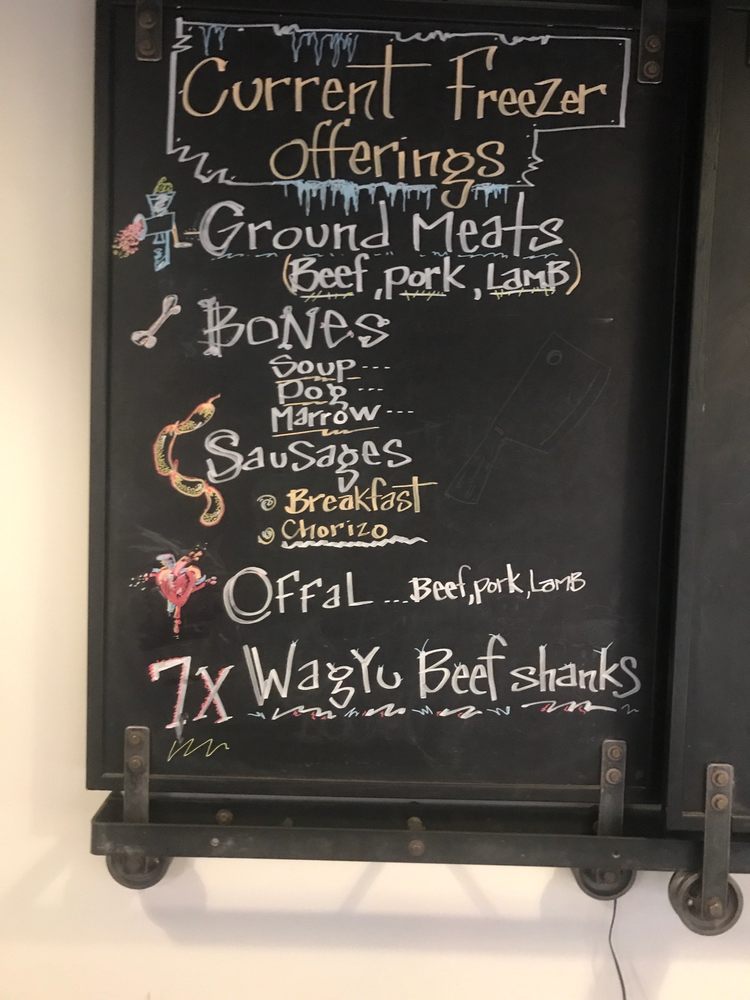 Current Freezer
offerings
Ground Meats
(Beef, pork, Lamb)
BoNes
Soup ---
Dog ---
Marrow ---
Sausages
Breakfast
Chorizo
Offal ... Beef, pork, Lamb
7X Wagyu Beef shanks